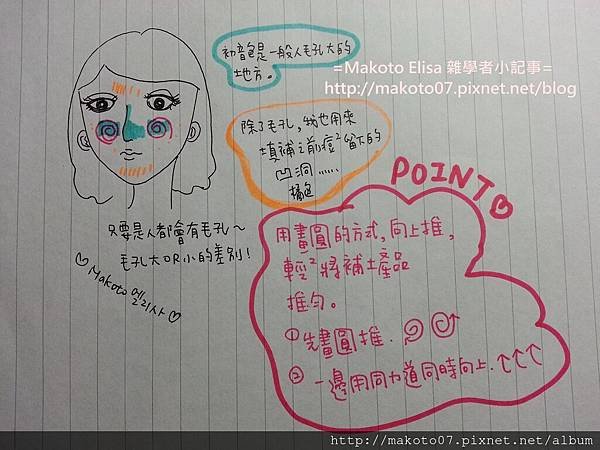 初音色是一般人毛孔大的
地方。
=Makoto Elisa 雜學者小記事=
http://makoto07.pixnet.net/blog
除了毛孔，我也用來
填補之前痘²留下的
凹洞......
橘色
POINT
用畫圓的方式，向上推，
輕²將補土產品
推勻。
①先畫圓推.
②一邊用同力道同時向上.↑↑↑
只要是人都會有毛孔～
毛孔大OR小的差別！
Makoto
http://makoto07.pixnet.net/album